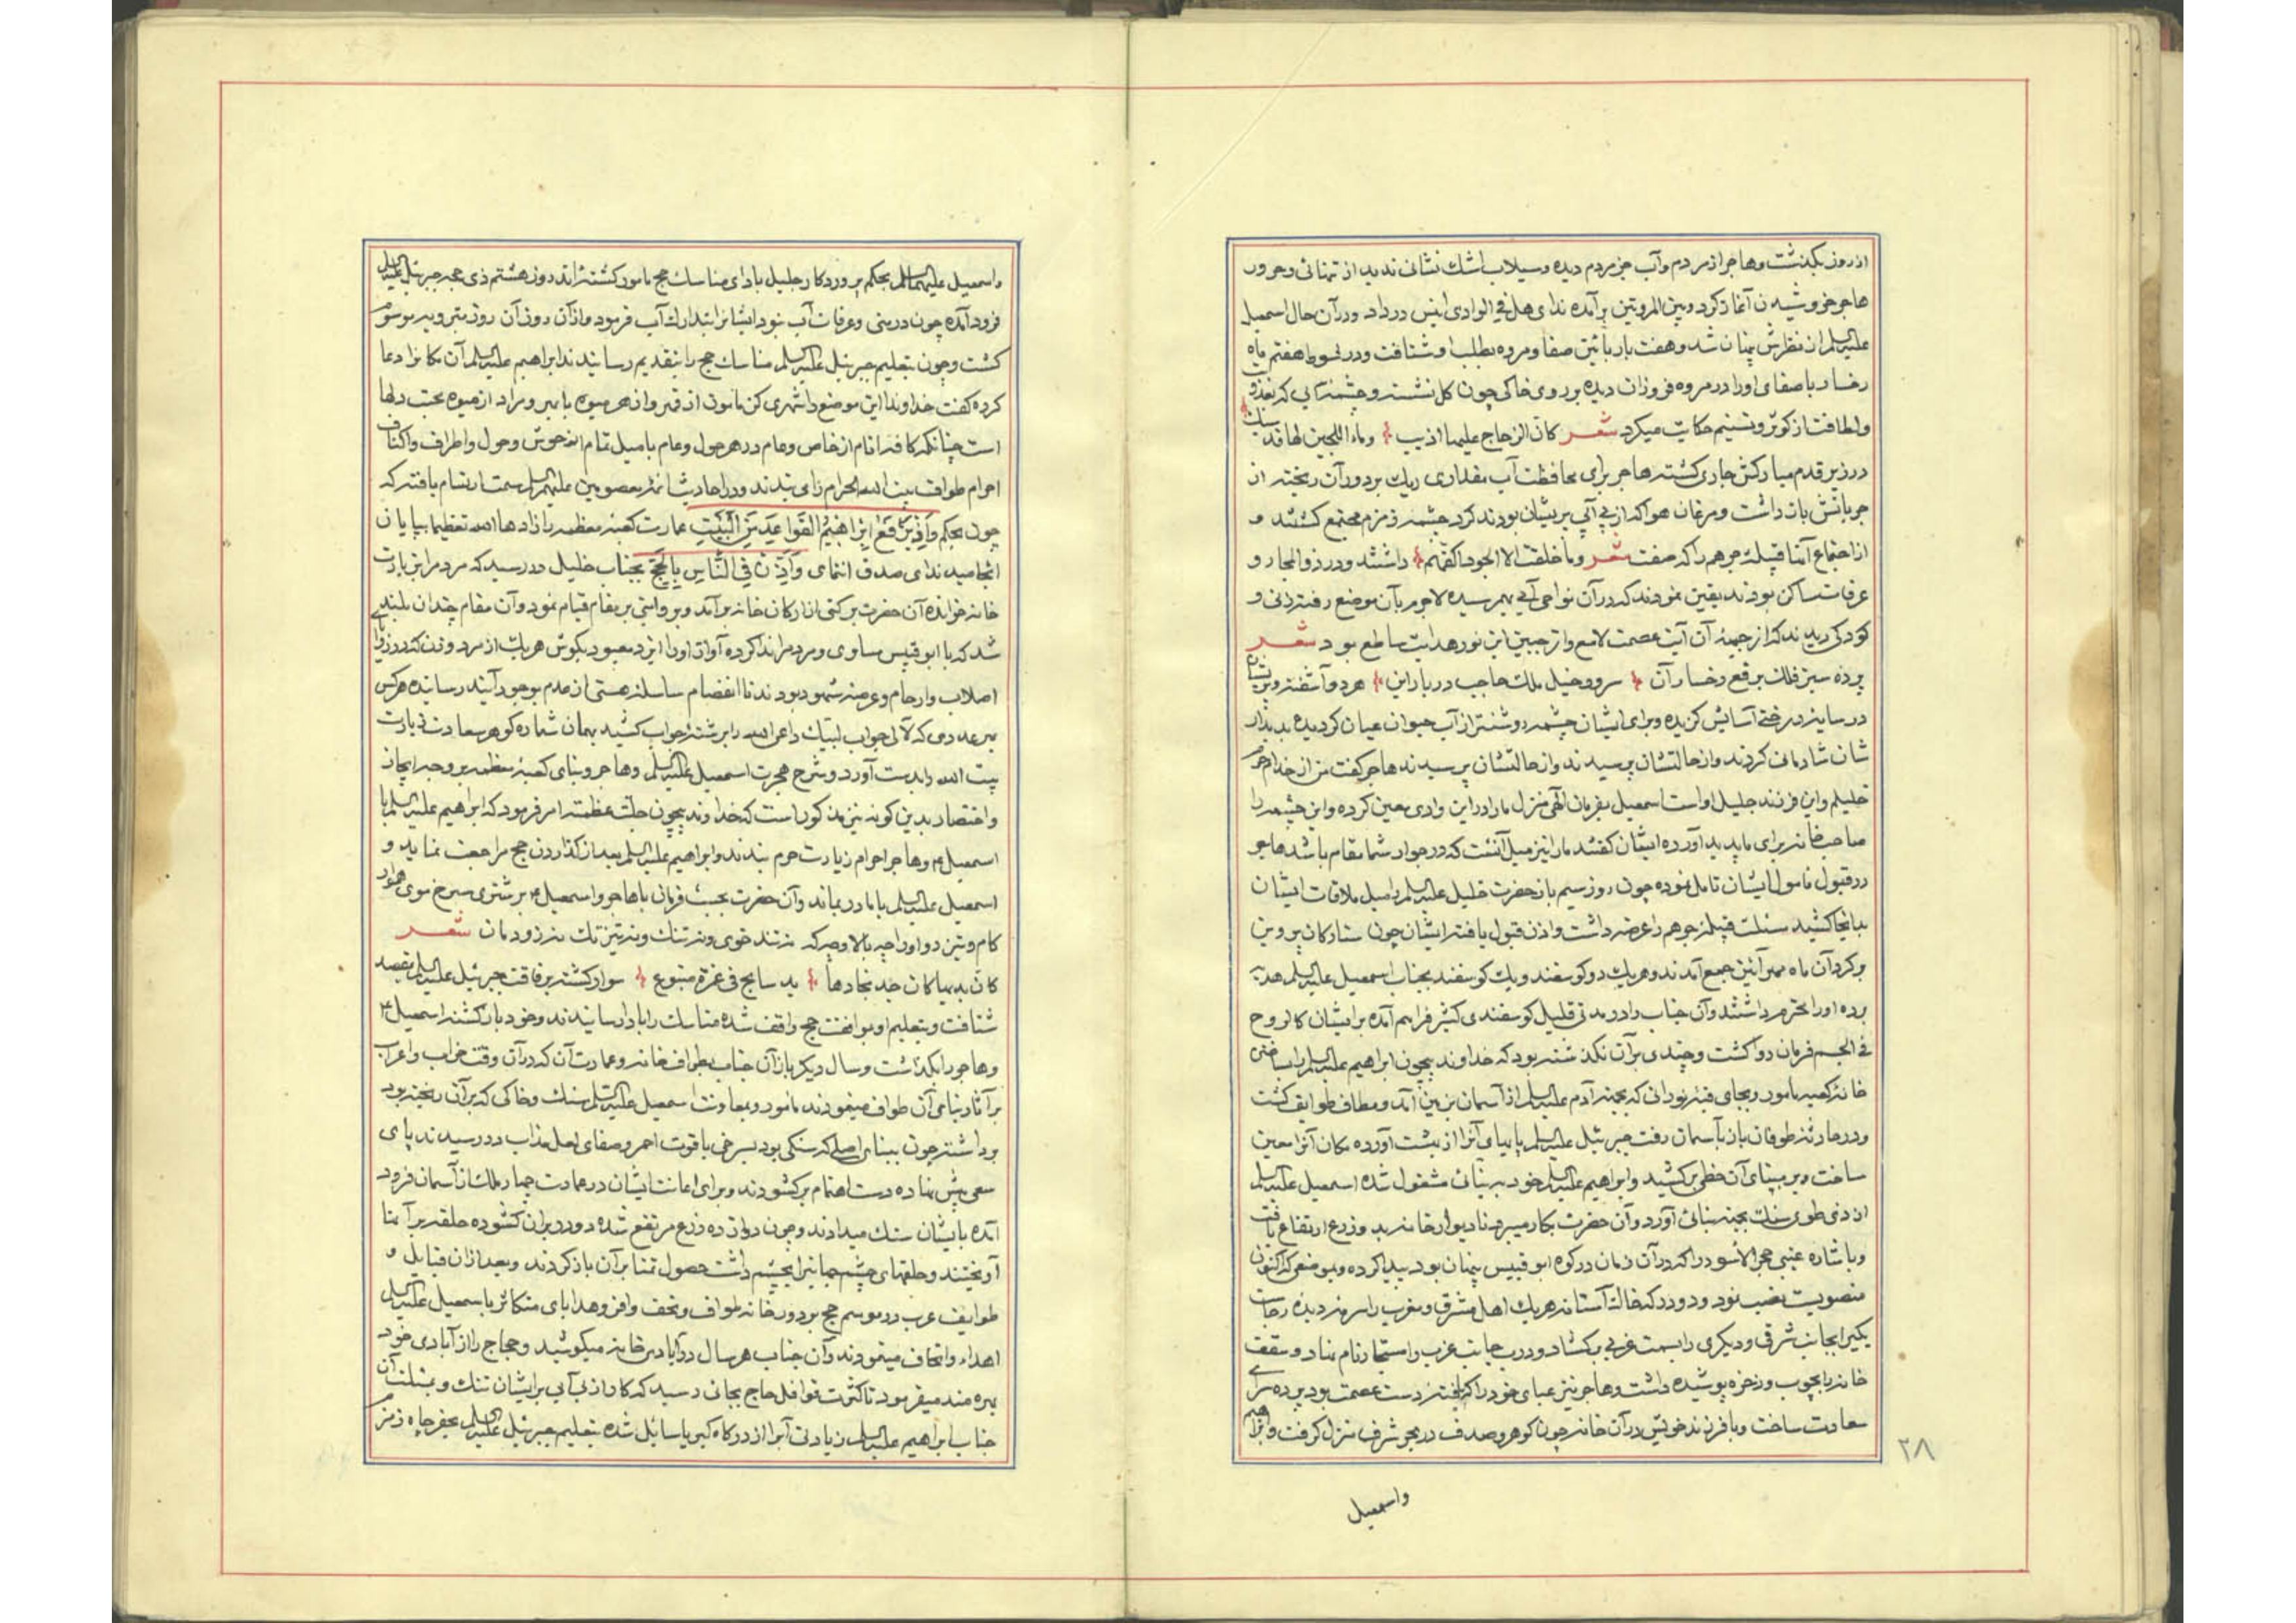 از روز بگذشت و هاجر از مردم و آب جز مردم دیده و سیلاب اشك نشانی ندید از تمنائی وحرور
هاجر خروشیدن آغاز کرد و بین المروتین برآمده ندای هل فی الوادی انیس در داد و در آن حال اسمعیل
علیه السلم از نظرش پنهان شد و هفت بار مابین صفا و مروه بطلب او شتافت و در شوط هفتم ماه
رخسار با صفای او را در مروه فروزان دیده بر روی خاکی چون کل نشسته و چشمه آبی که بعذوبت
ولطافت از کوثر و تسنیم حکایت میکرد شعر کان الزجاج علیها اذیب وماء اللجین لها قد سبك
در زیر قدم مبارکش جاری کشته هاجر برای محافظت آب مقداری ریك بر دور آن ریخته از
جریانش باز داشت و مرغان هوا که از بی آبی پریشان بودند کرد چشمه زمزم مجتمع کشتند و
از اجتماع آنها قبیله جرهم را که صفت شعر وما خلقت الا لجود اکفهم داشتند و در ذوالمجاز و
عرفات ساکن بودند یقین نمودند که در آن نواحی آبی بهم رسیده لاجرم بآن موضع رفته زنی و
کودکی دیدند که از جبهه آن آیت عصمت لامع و از جبین این نور هدایت ساطع بود شعر
پرده سبز فلك برقع رخسار آن سر و و خیل ملك حاجب دربار این هر دو آشفته و پریشان
در سایه درختی آسایش کزیده و برای ایشان چشمه روشنتر از آب حیوان عیان کردیده بدیدار
شان شادمانی کردند و از حالتشان پرسیدند هاجر کفت من از خدام حرم
خلیلم و این فرزند جلیل او است اسمعیل بفرمان الهی منزل ما را در این وادی معین کرده و این چشمه را
صاحبخانه برای ما پدید آورده ایشان کفتند ما را نیز میل آنست که در جوار شما مقام باشد هاجر
در قبول مامول ایشان تامل نموده چون روز سیم باز حضرت خلیل علیه السلم را میل ملاقات ایشان
بدانجا کشید مسئلت قبیله جرهم را عرضه داشت و اذن قبول یافته ایشان چون ستارکان پروین
بر کرد آن ماه مهر آئین جمع آمدند و هریك دو کوسفند و یك کوسفند بجناب اسمعیل علیه السلم هدیه
برده او را محترم داشتند و آن جناب را در مدتی قلیل کوسفندی کثیر فراهم آمده بر ایشان کالروح
فی الجسم فرمان روا کشت و چندی بر آن نکذشته بود که خداوند بیچون ابراهیم علیه السلم را بساختن
خانه کعبه مامور و بجای قبه نورانی که بجهة آدم علیه السلم از آسمان بزمین آمد و مطاف طوایف کشت
و در حادثه طوفان باز بآسمان رفت جبرئیل علیه السلم پایهای آنرا از بهشت آورده مکان آنرا معین
ساخت و بر مبنای آن خطی بر کشید و ابراهیم علیه السلم خود به بنائی مشغول شده اسمعیل علیه السلم
از ذی طوی سنك بجهة بنائی آورد و آن حضرت بکار میبرد تا دیوار خانه بدو ذرع ارتفاع یافت
و باشاره غیبی حجر الاسود را که در آن زمان در کوه ابو قبیس پنهان بود پیدا کرده و بموضعی که اکنون
منصوبست نصب نمود و دو در که خاك آستانه هریك اهل مشرق و مغرب را سرمه دیده رجاست
یکیرا بجانب شرقی و دیکری را بسمت غربی بکشاد و درب جانب غرب را مستجار نام نهاد و سقف
خانه را بچوب و اذخر پوشیده داشت و هاجر نیز عبای خود را که بافته دست عصمت بود پرده سرای
سعادت ساخت و با فرزند خویش در آن خانه چون کوهر و صدف در بحر شرف منزل کرفت و ابراهیم
۲۸
واسمعیل
واسمعیل علیهما السلم بحکم پروردکار جلیل بادای مناسك حج مامور کشته اند روز هشتم ذی حجه جبرئیل علیه السلم
فرود آمده چون در منی و عرفات آب نبود ایشانرا بتدارك آب فرمود و از آن روز آن روز بترویه موسوم
کشت و چون بتعلیم جبرئیل علیه السلم مناسك حج را بتقدیم رسانیدند ابراهیم علیه السلم آن مکانرا دعا
کرده کفت خداوندا این موضع را شهری کن مامون از قهر و از هر میوه با بهر و مراد از میوه محبت دلها
است چنانکه کافه انام از خاص و عام در هر حول و عام با میل تمام از حوش و حول و اطراف و اکناف
احرام طواف بیت الله الحرام را می بندند و در احادیث ائمه معصومین علیهم السلم سمت ارتسام یافته که
چون بحکم وَاِذْ یَرْفَعُ اِبْراهیمُ الْقَواعِدَ مِنَ الْبَیْتِ عمارت کعبه معظمه زادها الله تعظیما بپایان
انجامید ندای صدق انتمای وَاَذِّنْ فِی النّاسِ بِالْحَجِّ بجناب خلیل در رسید که مردم را بزیارت
خانه خوانده آن حضرت بر کنی از ارکان خانه برآمد و بروایتی بر مقام قیام نمود و آن مقام چندان بلند
شد که با ابو قبیس مساوی و مردم را ندا کرده آواز او را ایزد معبود بکوش هریك از مرد و زن که در زوایا
اصلاب و ارحام و عرصه شهود بودند تا انفصام سلسله هستی از عدم بوجود آیند رسانیده هر کس
بهر عددی که لآلی جواب لبیك داعی الله را برشته جواب کشید بهمان شماره کوهر سعادت زیارت
بیت الله را بدست آورد و شرح هجرت اسمعیل علیه السلم و هاجر و بنای کعبه معظمه بر وجه ایجاز
و اختصار بدین کونه نیز مذکور است که خداوند بیچون جلت عظمته امر فرمود که ابراهیم علیه السلم با
اسمعیل و هاجر احرام زیارت حرم بندند و ابراهیم علیه السلم بعد از کذاردن حج مراجعت نماید و
اسمعیل علیه السلم با مادر بماند و آن حضرت بحسب فرمان با هاجر و اسمعیل بر شتری سرخ موی هموار
کام و تین دو اوراچه بالا وچه که نه تند خوی و نه تنك و نه تیزتك نه زود مان شعر
کان بدیها کان جد نجادها ید سابح فی غزة متبوع سوار کشته برفاقت جبرئیل علیه السلم بقصد
شتافت و بتعلیم او بمواقف حج واقف شده مناسك را بادا رسانیدند و خود بازکشته اسمعیل
و هاجر را بکذاشت و سال دیکر باز آن جناب بطواف خانه و عمارت آن که در آن وقت خراب و اعراب
بر آثار بنای آن طواف مینمودند مامور و بمعاونت اسمعیل علیه السلم سنك و خاکی که بر آن ریخته بود
برداشته چون ببنای اصلی که سنکی بود بسرخی یاقوت احمر و صفای لعل مذاب در رسیدند پای
سعی پیش نهاده دست اهتمام برکشودند و برای اعانت ایشان در عمارت چهار ملك از آسمان فرود
آمده بایشان سنك میدادند و چون دوازده ذرع مرتفع شده دو در بر آن کشوده حلقه بر آنها
آویختند و حلقهای چشم جهانیرا بچشم داشت حصول تمنا بر آن باز کردند و بعد از آن قبایل و
طوایف عرب در موسم حج بر دور خانه طواف و تحف وافر و هدایای متکاثر باسمعیل علیه السلم
اهداء و اتحاف مینمودند و آن جناب هر سال در آبادی خانه میکوشید و حجاج را از آبادی خود
بهره مند میفرمود تا کثرت قوافل حاج بجائی رسید که کار از بی آبی بر ایشان تنك و بمسئلت آن
جناب ابراهیم علیه السلم زیادتی آبرا از درکاه کبریا سایل شده بتعلیم جبرئیل علیه السلم بحفر چاه زمزم